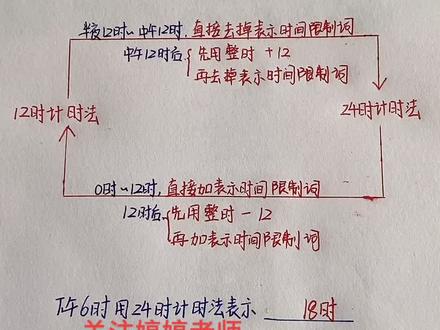 半夜12时~中午12时,直接去掉表示时间限制词
中午12时后 先用整时 +12
再去掉表示时间限制词
12时计时法
24时计时法
0时~12时,直接加表示时间限制词
12时后 先用整时 - 12
再加表示时间限制词
下午6时用24时计时法表示 18时
关注婷婷老师